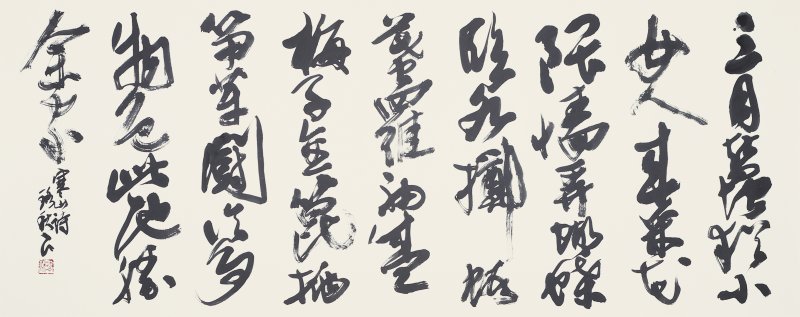 三月蠶猶小
女人来采花
隈墻弄蝴蝶
臨水擲蝦
蟇羅袖盛
梅子金篦挑
筍芽鬪論多
物色此地勝
余家
寒山詩